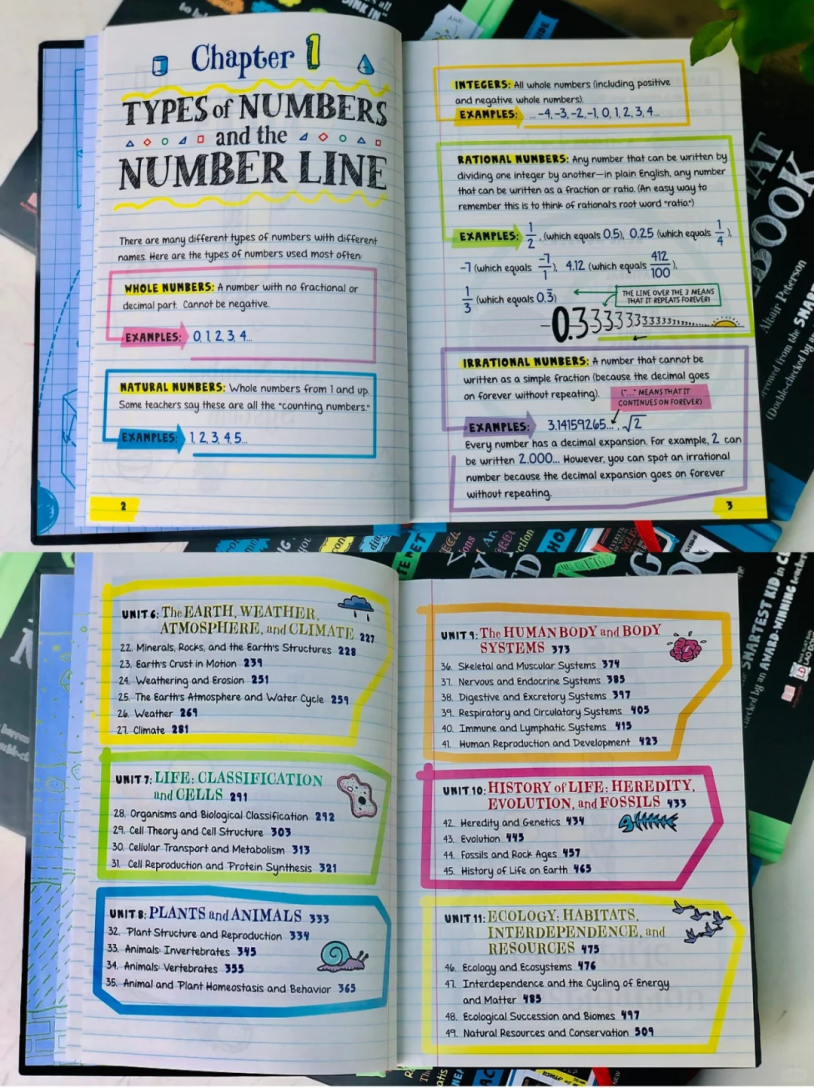 Chapter 1
TYPES of NUMBERS
and the
NUMBER LINE
There are many different types of numbers with different
names. Here are the types of numbers used most often:
WHOLE NUMBERS: A number with no fractional or
decimal part. Cannot be negative.
EXAMPLES: 0, 1, 2, 3, 4...
NATURAL NUMBERS: Whole numbers from 1 and up.
Some teachers say these are all the "counting numbers."
EXAMPLES: 1, 2, 3, 4, 5...
2
INTEGERS: All whole numbers (including positive
and negative whole numbers).
EXAMPLES: ...-4, -3, -2, -1, 0, 1, 2, 3, 4...
RATIONAL NUMBERS: Any number that can be written by
dividing one integer by another—in plain English, any number
that can be written as a fraction or ratio. (An easy way to
remember this is to think of rational's root word "ratio.")
EXAMPLES: 1/2 (which equals 0.5), 0.25 (which equals 1/4),
-7 (which equals -7/1), 4.12 (which equals 412/100),
1/3 (which equals 0.3̅)
THE LINE OVER THE 3 MEANS
THAT IT REPEATS FOREVER!
-0.333333333
IRRATIONAL NUMBERS: A number that cannot be
written as a simple fraction (because the decimal goes
on forever without repeating).
("..." MEANS THAT IT
CONTINUES ON FOREVER)
EXAMPLES: 3.14159265..., √2
Every number has a decimal expansion. For example, 2 can
be written 2.000... However, you can spot an irrational
number because the decimal expansion goes on forever
without repeating.
3
UNIT 6: The EARTH, WEATHER,
ATMOSPHERE, and CLIMATE 227
22. Minerals, Rocks, and the Earth's Structures 228
23. Earth's Crust in Motion 239
24. Weathering and Erosion 251
25. The Earth's Atmosphere and Water Cycle 259
26. Weather 269
27. Climate 281
UNIT 7: LIFE: CLASSIFICATION
and CELLS 291
28. Organisms and Biological Classification 292
29. Cell Theory and Cell Structure 303
30. Cellular Transport and Metabolism 313
31. Cell Reproduction and Protein Synthesis 321
UNIT 8: PLANTS and ANIMALS 333
32. Plant Structure and Reproduction 334
33. Animals: Invertebrates 345
34. Animals: Vertebrates 355
35. Animal and Plant Homeostasis and Behavior 365
UNIT 9: The HUMAN BODY and BODY
SYSTEMS 373
36. Skeletal and Muscular Systems 374
37. Nervous and Endocrine Systems 385
38. Digestive and Excretory Systems 397
39. Respiratory and Circulatory Systems 405
40. Immune and Lymphatic Systems 415
41. Human Reproduction and Development 423
UNIT 10: HISTORY of LIFE: HEREDITY,
EVOLUTION, and FOSSILS 433
42. Heredity and Genetics 434
43. Evolution 445
44. Fossils and Rock Ages 457
45. History of Life on Earth 465
UNIT 11: ECOLOGY: HABITATS,
INTERDEPENDENCE, and
RESOURCES 475
46. Ecology and Ecosystems 476
47. Interdependence and the Cycling of Energy
and Matter 485
48. Ecological Succession and Biomes 497
49. Natural Resources and Conservation 509